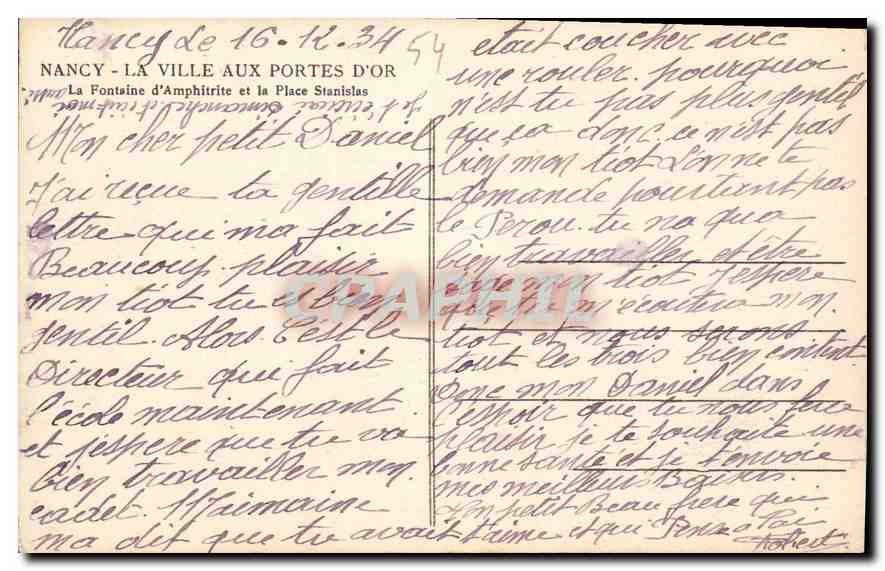 Nancy Le 16.12.34
54
NANCY - LA VILLE AUX PORTES D'OR
La Fontaine d'Amphitrite et la Place Stanislas
Mon cher petit Daniel
J'ai reçue ta gentille
lettre qui ma fait
Beaucoup plaisir
mon tiot tu est bien
gentil. Alors C'est le
Directeur qui fait
l'école maintenant.
et j'espere que tu va
bien travailler mon
cadet. M'aimaine
ma dit que tu avait
etait coucher avec
une rouler. pourquoi
n'est tu pas plus gentil
que ça donc. ce n'est pas
bien mon tiot L'on ne te
demande pourtant pas
le Perou. tu na qua
bien travailler et être
mon tiot J'espere
que tu m'écoutera mon
tiot et nous serons
tout les trois bien content.
Donc mon Daniel dans
l'espoir que tu nous fera
plaisir je te souhaite une
bonne santé et je t'envoie
mes meilleurs Baisers.
Ton petit Beau frère qui
t'aime et qui Pense a toi
Robert
CPAPHIL